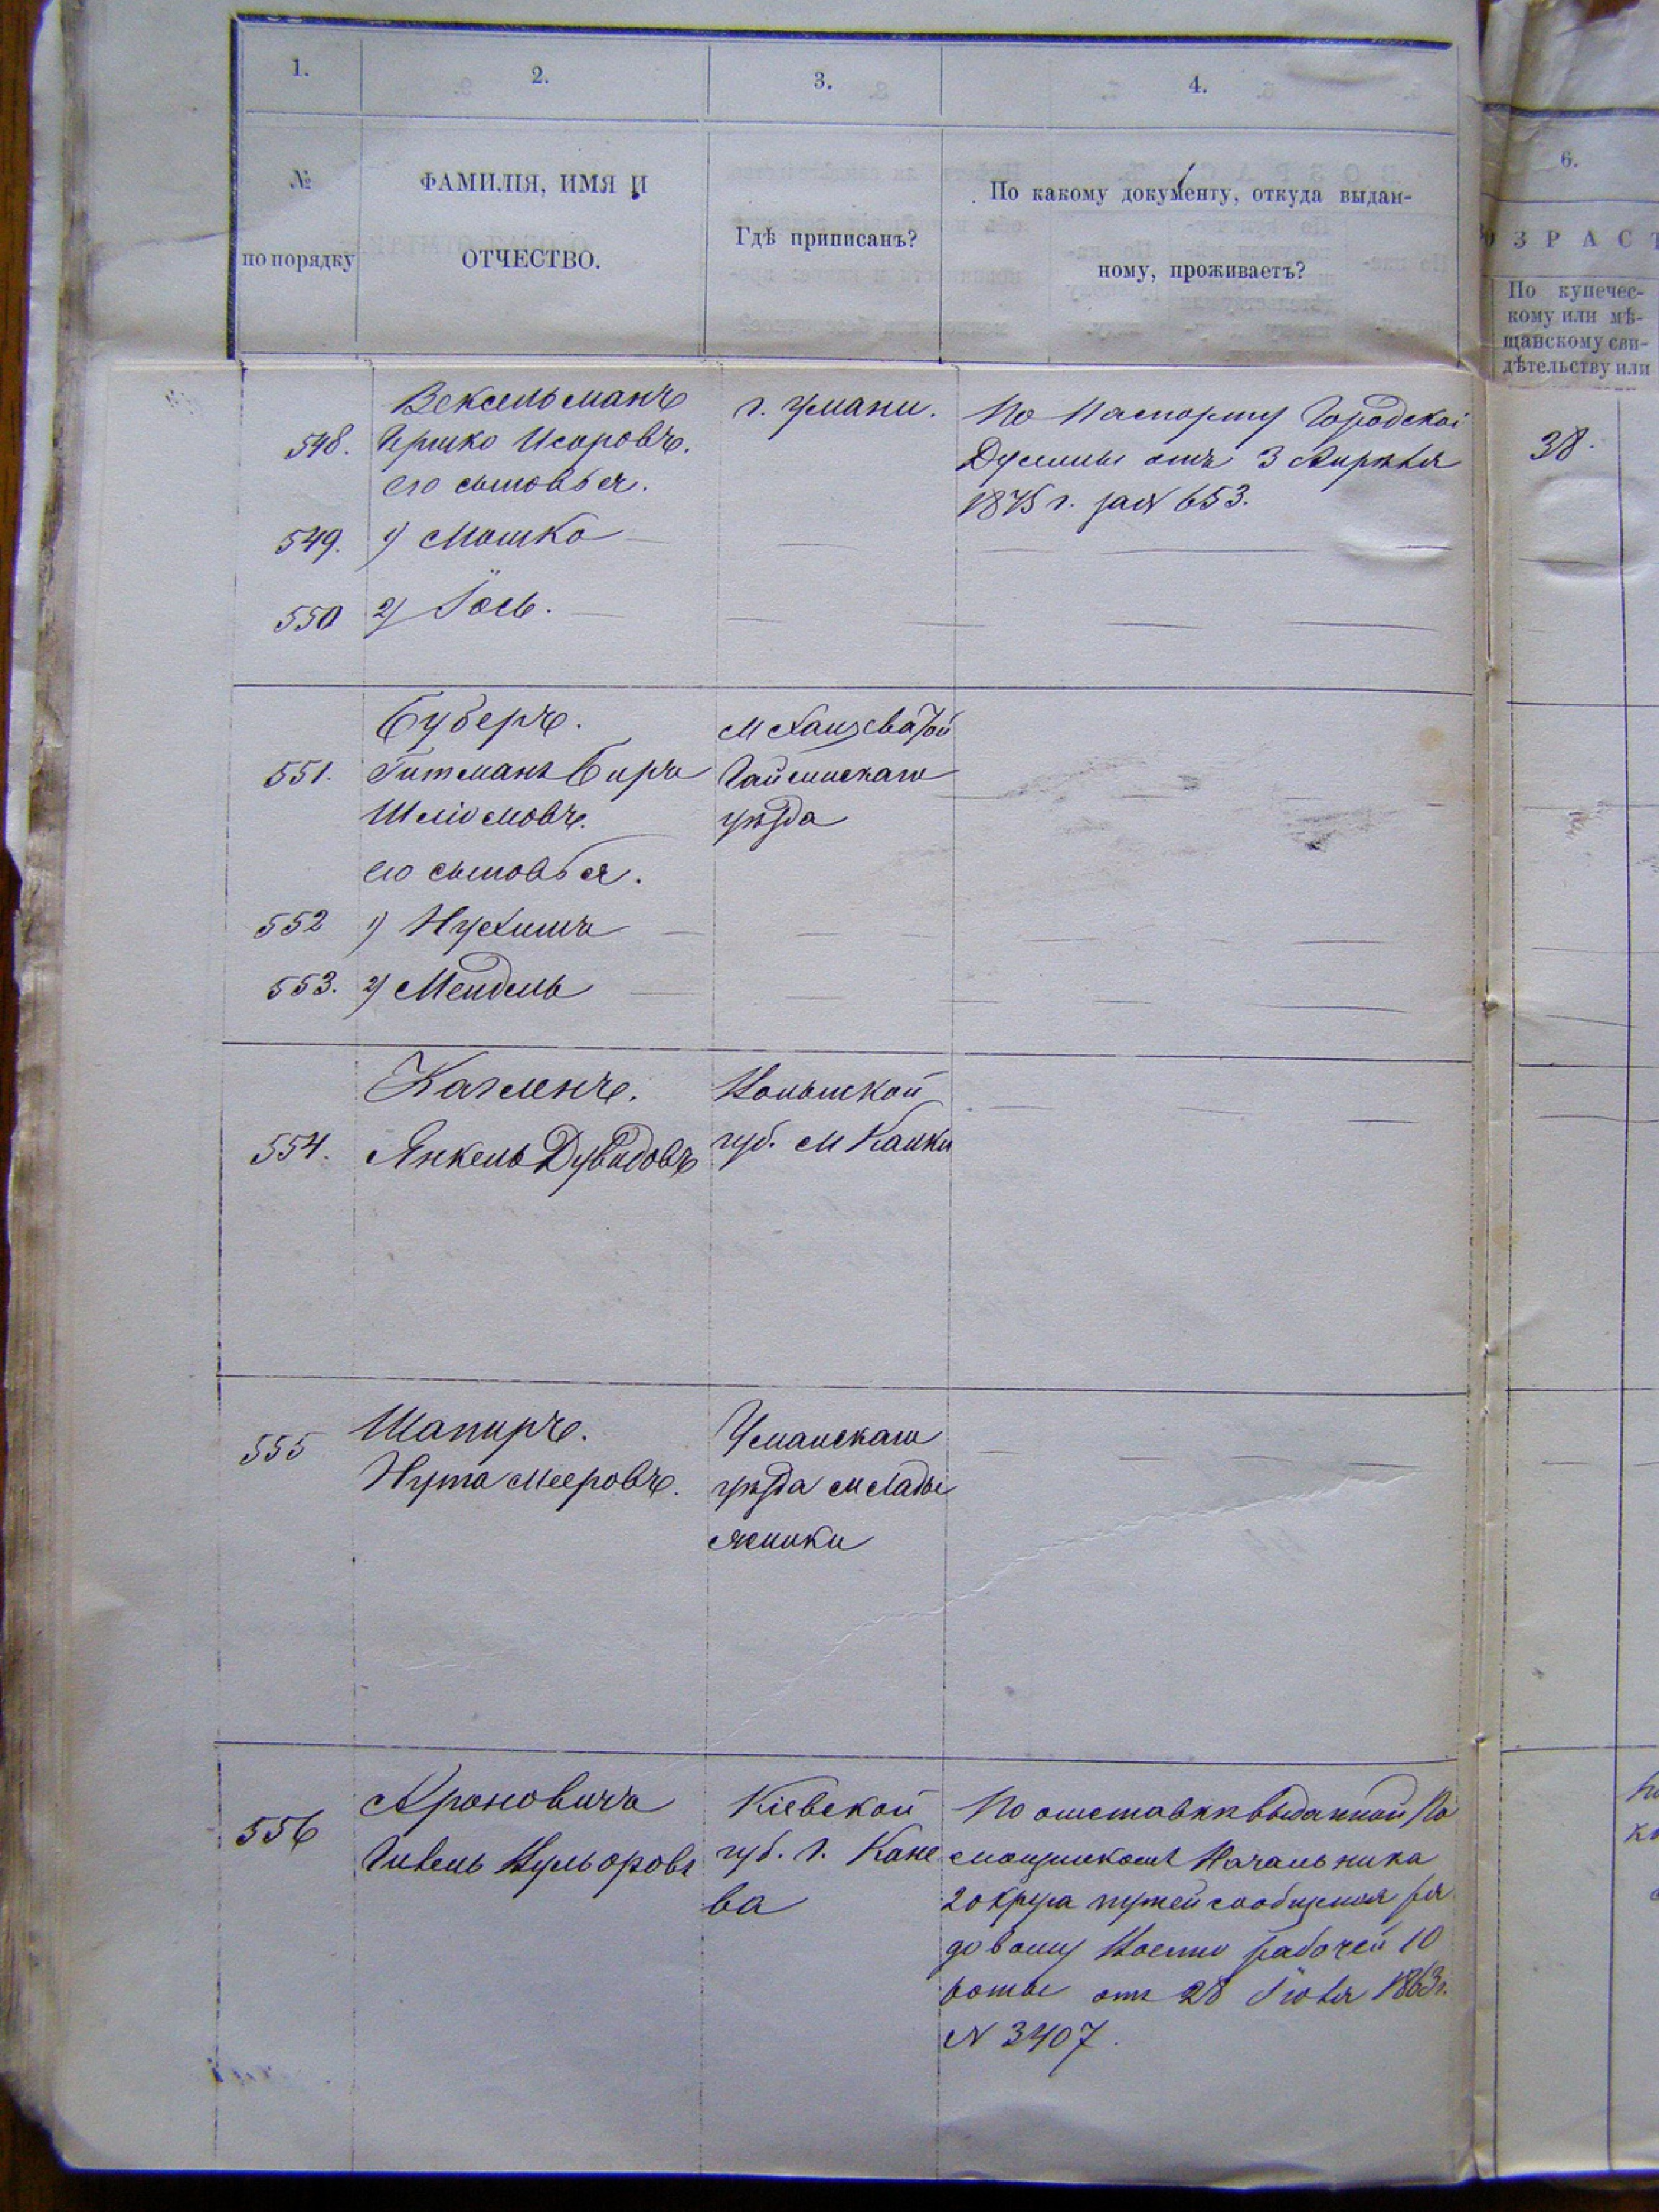 1.
2.
3.
4.
6.
№
по порядку
ФАМИЛІЯ, ИМЯ И
ОТЧЕСТВО.
Гдѣ приписанъ?
По какому документу, откуда выдан-
ному, проживаетъ?
ОЗРАСТ
По купечес-
кому или мѣ-
щанскому сви-
дѣтельству или
Вексельманъ
548. Гершко Исаровъ.
его сыновья.
г. Умани.
По Паспорту Городской
Думы отъ 3 Апрѣля
1875 г. за № 653.
38.
549. 1) Мошко
550 2) Іось.
Буберъ.
551. Гитманъ Беръ
Шліомовъ.
его сыновья.
м Хащеватой
Гайсинскаго
уѣзда
552 1) Нухимъ
553. 2) Мендель
Каменъ.
554. Янкель Дувидовъ
Волынской
губ. м
555 Шапиръ.
Нута Мееровъ.
Уманскаго
уѣзда м Лады
жинки
556 Ароновичъ
Кіевской
губ. г. Кане
ва
По отставкѣ выданной По
мощникомъ Начальника
2 округа путей сообщенія ря
довому Военно рабочей 10
роты отъ 28 Іюля 1863 г.
№ 3407.